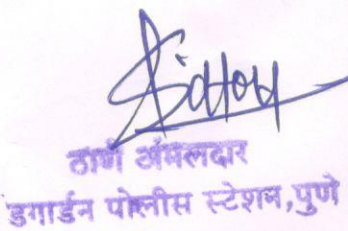 ठाणे अंमलदार
डगार्डन पोलीस स्टेशन,पुणे